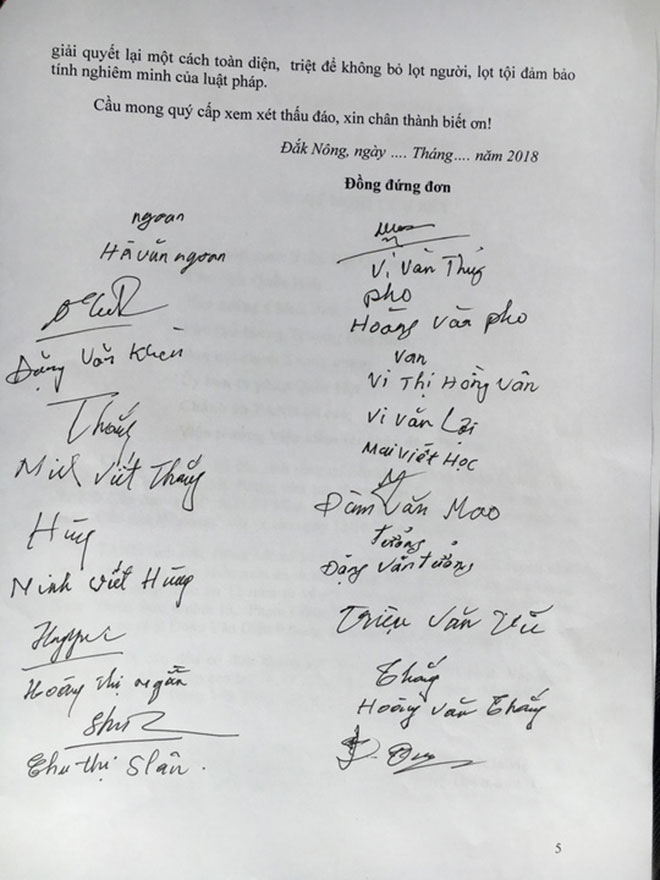 giải quyết lại một cách toàn diện, triệt để không bỏ lọt người, lọt tội đảm bảo
tính nghiêm minh của luật pháp.
Cầu mong quý cấp xem xét thấu đáo, xin chân thành biết ơn!
Đắk Nông, ngày .... Tháng.... năm 2018
Đồng đứng đơn
ngoan
Hà văn ngoan
Đặng Văn Khên
Thắng
Ninh Viết Thắng
Hùng
Ninh viết Hùng
Hoàng thị ngắn
Chu thị Slân.
Vi Văn Thủy
pho
Hoàng Văn pho
Van
Vi Thị Hồng Vân
Vi văn Lại
Mai Viết Học
Đàm Văn Mao
tưởng
Đặng Văn tưởng
Triệu Văn Vũ
Thắng
Hoàng Văn Thắng
5